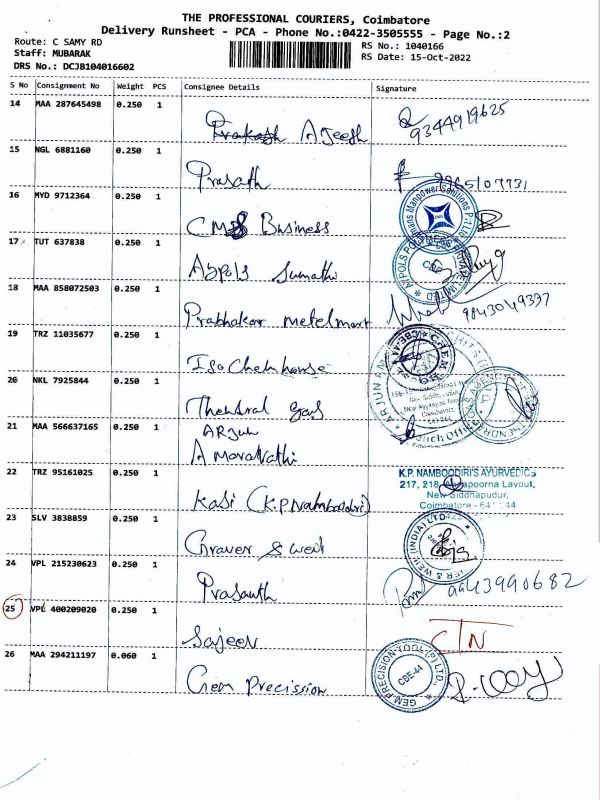 THE PROFESSIONAL COURIERS, Coimbatore
Delivery Runsheet - PCA - Phone No.:0422-3505555 - Page No.:2
Route: C SAMY RD
RS No.: 1040166
Staff: MUBARAK
RS Date: 15-Oct-2022
DRS No.: DCJB104016602
S No Consignment No Weight PCS Consignee Details Signature
14 MAA 287645498 0.250 1 Prakash Ajeesh 9344919625
15 NGL 6881160 0.250 1 Prasath
16 MYD 9712364 0.250 1 CMS Business
17 TUT 637838 0.250 1 Azpols Sumathi
18 MAA 858072503 0.250 1 Prabhakar metelmart 9843049397
19 TRZ 11035677 0.250 1 Iso Chem house
20 NKL 7925844 0.250 1 Thendral gas
21 MAA 566637165 0.250 1 Arjun
Amaravathi
22 TRZ 95161025 0.250 1 Kasi (K.P Namboodiri)
K.P. NAMBOODIRI'S AYURVEDICS
217, 218, Layout,
New Siddhapudur,
Coimbatore
23 SLV 3838859 0.250 1 Graver & weil
24 VPL 215230623 0.250 1 Prasanth 9943990682
25 VPL 400209020 0.250 1 Sajeev CTN
26 MAA 294211197 0.060 1 Gem Precission
GEM PRECISION TOOL (P) LTD.,
CBE-44